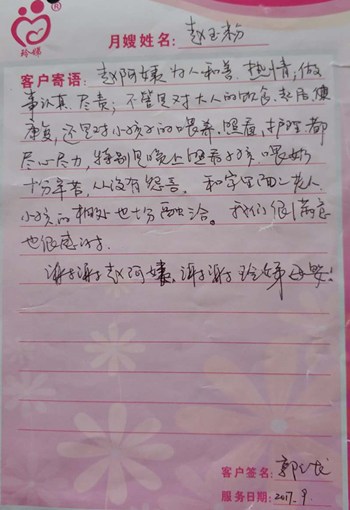 ®
玲娣
月嫂姓名：赵玉粉
客户寄语：赵阿姨为人和善，热情，做
事认真，尽责；不管是对大人的饮食、起居、
康复，还是对小孩子的喂养、照看、护理都
尽心尽力，特别是晚上照看小孩，喂奶
十分辛苦，从没有怨言。和家里面老人、
小孩的相处也十分融洽。我们很满意
也很感谢。
谢谢赵阿姨，谢谢玲娣母婴！
客户签名：郭
服务日期：2017.9.